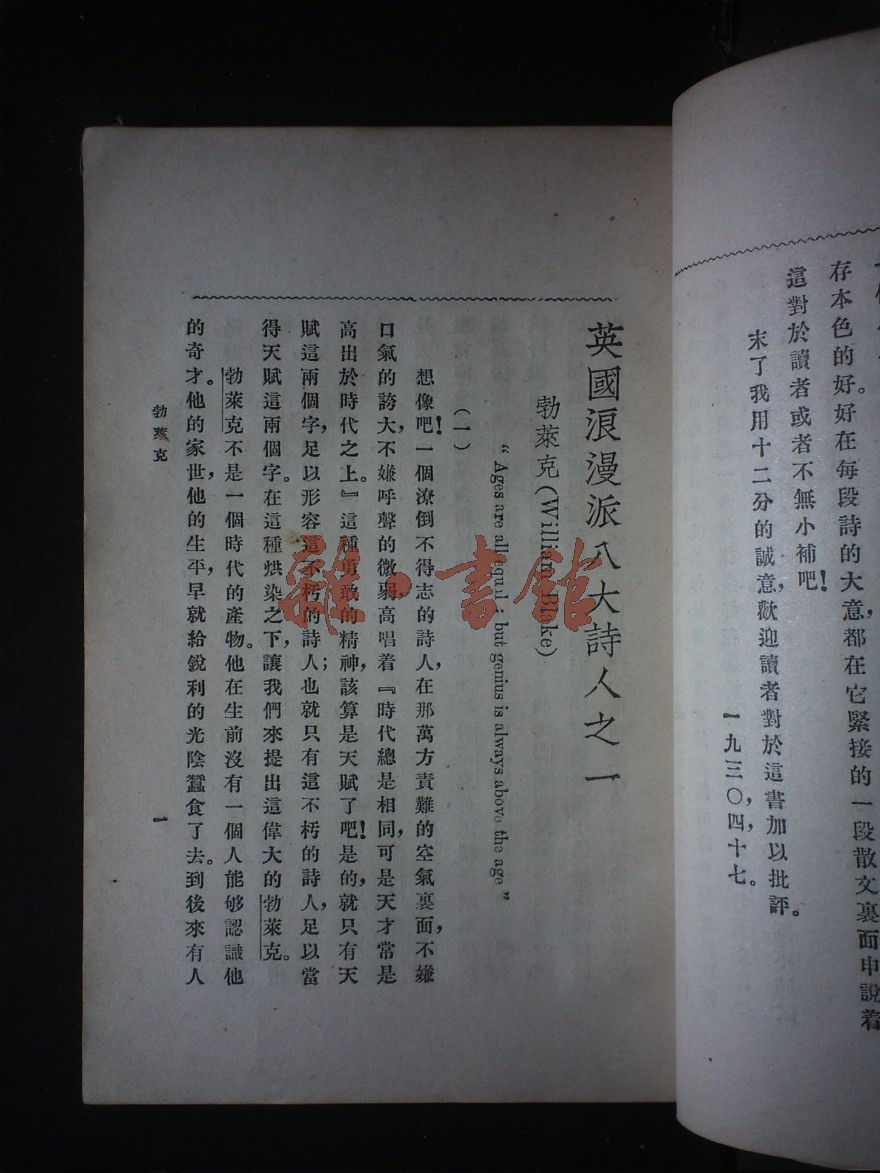 存本色的好。好在每段詩的大意，都在它緊接的一段散文裏面申說着
這對於讀者或者不無小補吧！
末了我用十二分的誠意，歡迎讀者對於這書加以批評。
一九三〇，四，十七。
英國浪漫派八大詩人之一
勃萊克(William Blake)
“Ages are all equal; but genius is always above the age”
(一)
想像吧！一個潦倒不得志的詩人，在那萬方責難的空氣裏面，不嫌
口氣的誇大，不嫌呼聲的微弱，高唱着『時代總是相同，可是天才常是
高出於時代之上。』這種勇敢的精神，該算是天賦了吧！是的，就只有天
賦這兩個字，足以形容這不朽的詩人；也就只有這不朽的詩人，足以當
得天賦這兩個字。在這種烘染之下，讓我們來提出這偉大的勃萊克。
勃萊克不是一個時代的產物。他在生前沒有一個人能够認識他
的奇才。他的家世，他的生平，早就給銳利的光陰蠶食了去。到後來有人
勃萊克
一
雜·書館